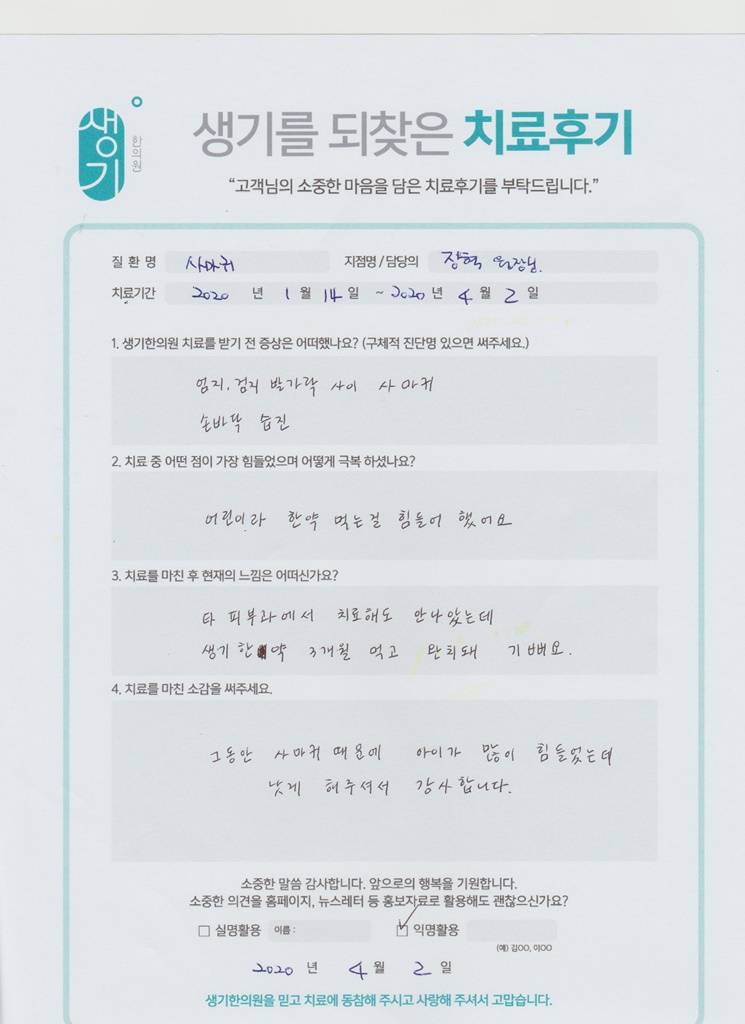 생기
한의원
생기를 되찾은 치료후기
“고객님의 소중한 마음을 담은 치료후기를 부탁드립니다.”
질 환 명 사마귀 지점명 / 담당의 장혁 원장님.
치료기간 2020 년 1 월 14 일 ~ 2020 년 4 월 2 일
1. 생기한의원 치료를 받기 전 증상은 어떠했나요? (구체적 진단명 있으면 써주세요.)
엄지, 검지 발가락 사이 사마귀
손바닥 습진
2. 치료 중 어떤 점이 가장 힘들었으며 어떻게 극복 하셨나요?
어린이라 한약 먹는걸 힘들어 했어요
3. 치료를 마친 후 현재의 느낌은 어떠신가요?
타 피부과에서 치료해도 안나았는데
생기 한약 3개월 먹고 완치돼 기뻐요.
4. 치료를 마친 소감을 써주세요.
그동안 사마귀 때문에 아이가 많이 힘들었는데
낫게 해주셔서 감사합니다.
소중한 말씀 감사합니다. 앞으로의 행복을 기원합니다.
소중한 의견을 홈페이지, 뉴스레터 등 홍보자료로 활용해도 괜찮으신가요?
□ 실명활용 이름 : ☑ 익명활용
(예) 김OO, 이OO
2020 년 4 월 2 일
생기한의원을 믿고 치료에 동참해 주시고 사랑해 주셔서 고맙습니다.